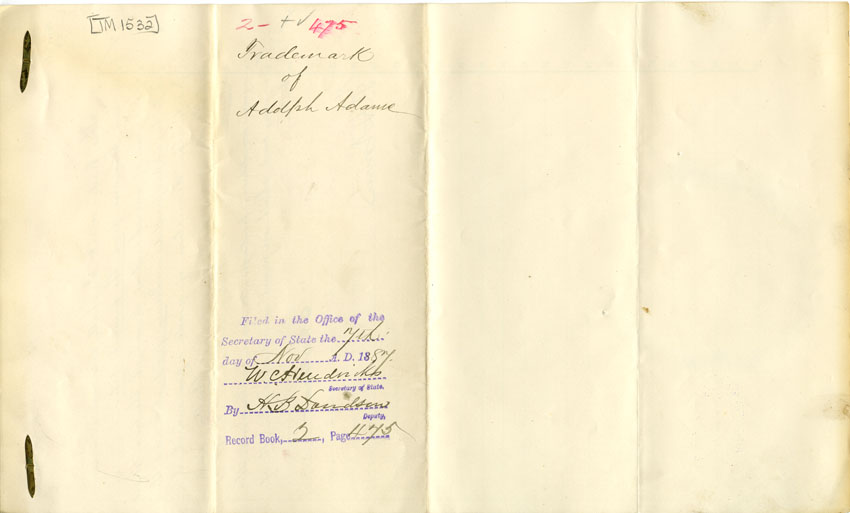 [TM 1532]
2 - 475
Trademark
of
Adolph Adams
Filed in the Office of the
Secretary of State the 7th
day of Nov A. D. 1887.
W C Hendricks
Secretary of State.
By H. B. Davidson
Deputy,
Record Book, 2, Page 475